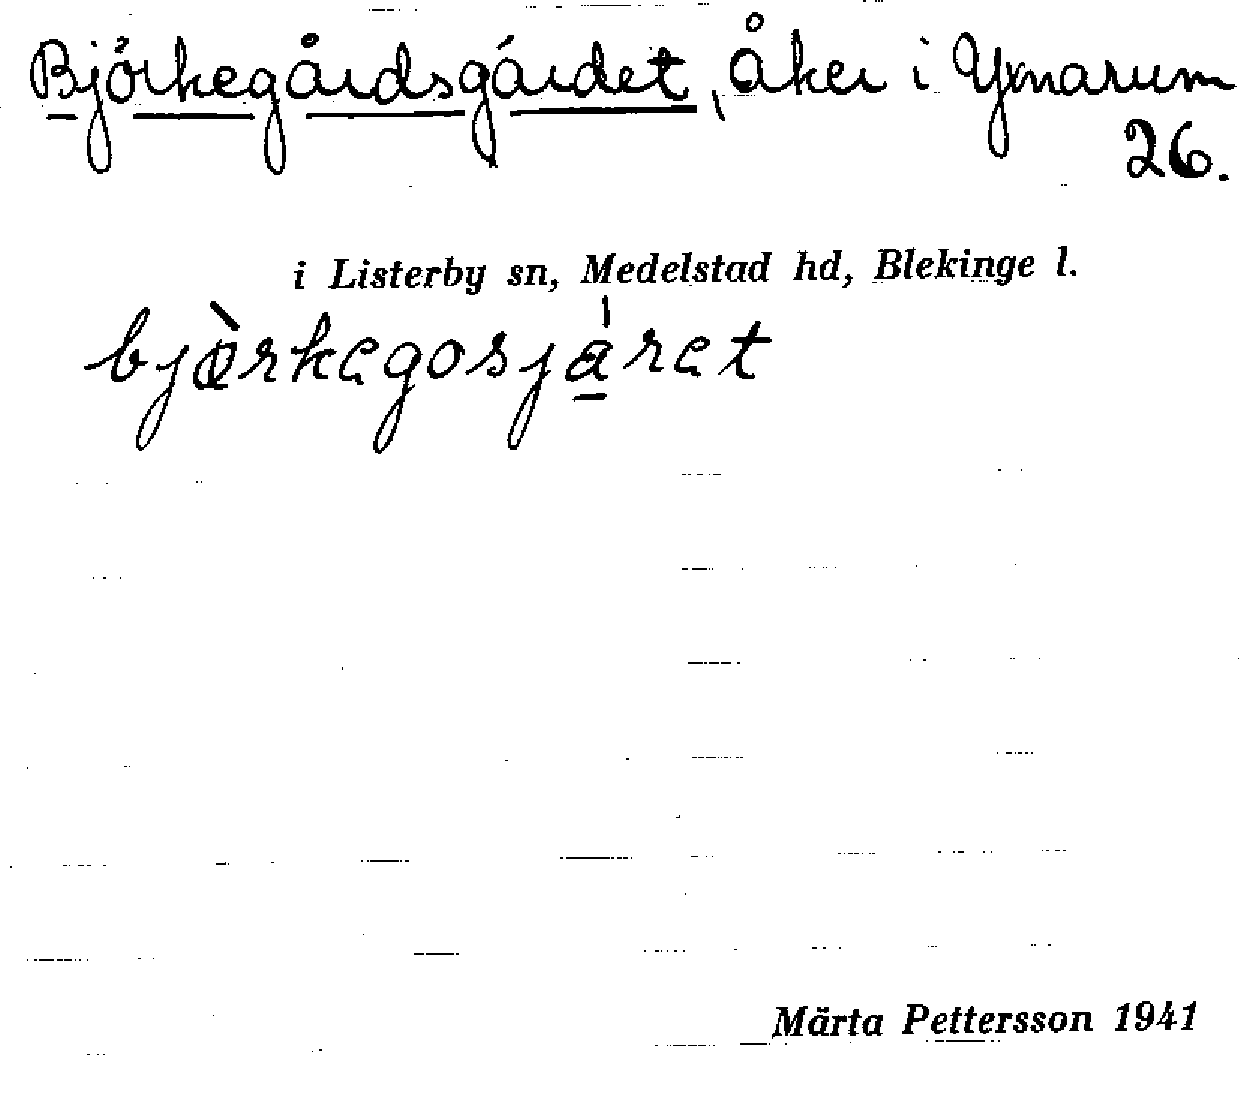 Björkegårdsgärdet, Åker i Yxnarum
26.
i Listerby sn, Medelstad hd, Blekinge l.
björkegosjaret
Märta Pettersson 1941